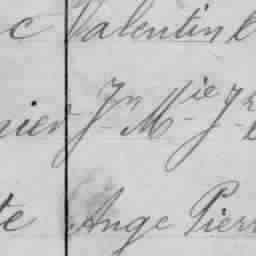 c Valentin
nier Jn Mie J
te Ange Pierr